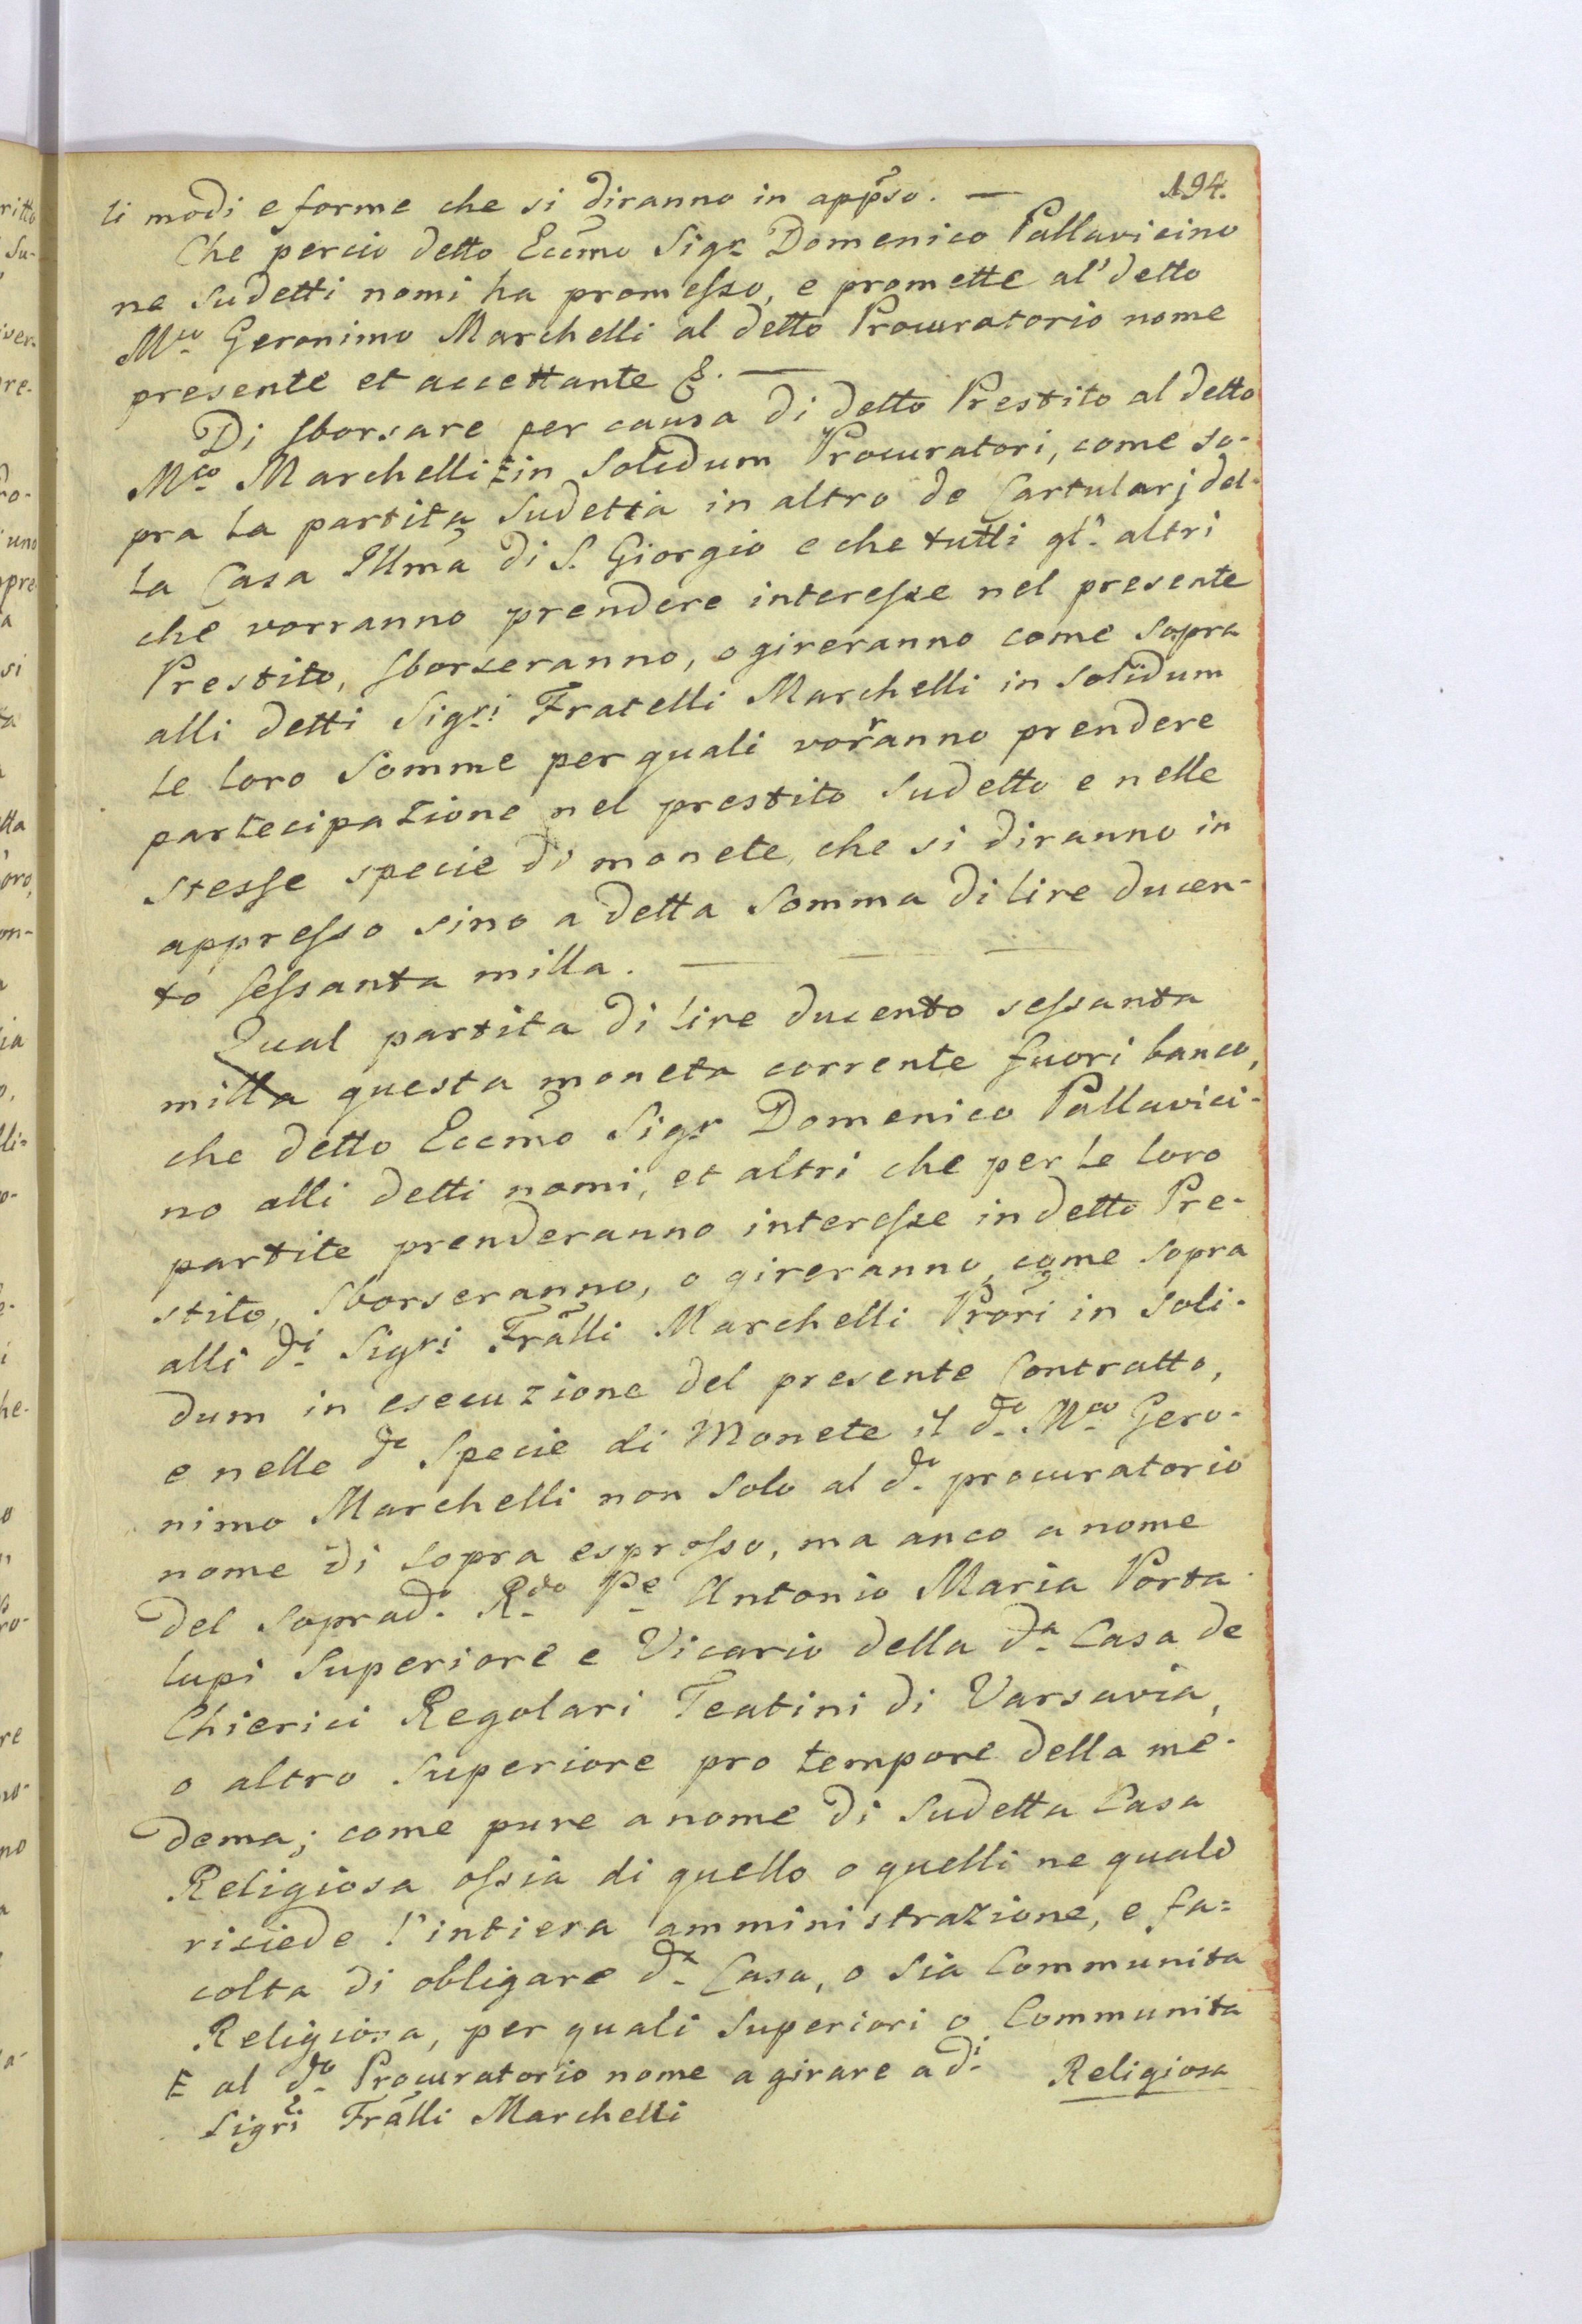 194.
li modi e forme che si diranno in app̃so. —
Che percio detto Eccm̃o Sigr Domenico Pallavicino
ne sudetti nomi ha promesso, e promette al' detto
Mco Geronimo Marchelli al detto Procuratorio nome
presente et accettante &. —
Di sborsare per causa di detto Prestito al detto
Mco Marchelli E in solidum Procuratori, come so-
pra la partita sudetta in altro de Cartularj del-
la Casa Illm̃a di S. Giorgio e che tutti gl' altri
che vorranno prendere interesse nel presente
Prestito, sborseranno, o gireranno come sopra
alli detti Sigri Fratelli Marchelli in solidum
le loro somme per quali vorranno prendere
partecipazione nel prestito sudetto e nelle
stesse specie di monete, che si diranno in
appresso sino a detta somma di lire ducen-
to sessanta milla. —
Qual partita di lire ducento sessanta
milla questa moneta corrente fuori banco,
che detto Eccm̃o Sigr Domenico Pallavici-
no alli detti nomi, et altri che per le loro
partite prenderanno interesse in detto Pre-
stito, sborseranno, o gireranno, come sopra
alli di Sigri Frãlli Marchelli Prõri in soli-
dum in esecuzione del presente Contratto,
e nelle de specie di Monete il do Mco Gero-
nimo Marchelli non solo al do procuratorio
nome di sopra espresso, ma anco a nome
del soprado Rdo Pe Antonio Maria Porta
lupi Superiore e Vicario della da Casa de
Chierici Regolari Teatini di Varsavia,
o altro Superiore pro tempore della me-
dema; come pure a nome di sudetta Casa
Religiosa ossia di quello o quelli ne quali
risiede l'intiera amministrazione, e fa=
colta di obligare da Casa, o sia Communita
Religiosa, per quali Superiori o Communita
Religiosa
E al do Procuratorio nome a girare a di
Sigri Frãlli Marchelli